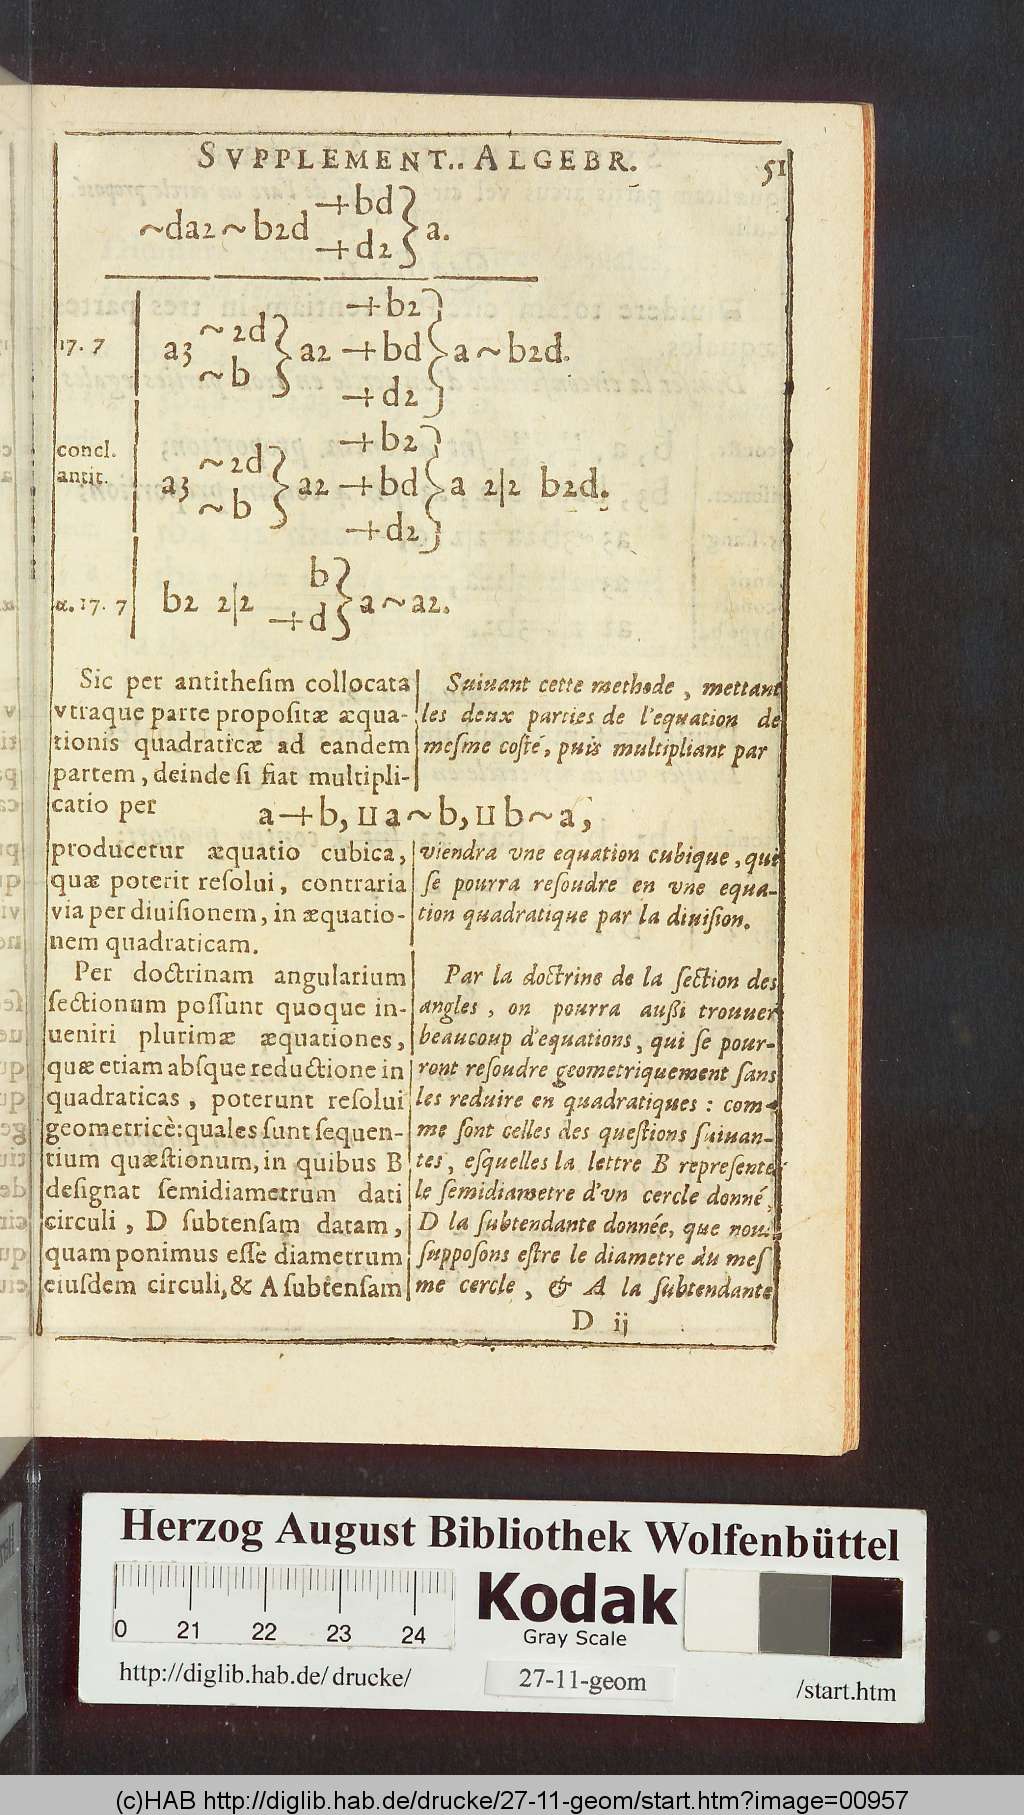 SVPPLEMENT.. ALGEBR. 51
+bd
~da2 ~ b2d } a.
+d2
+b2
~2d
17. 7 a3 } a2 +bd } a ~ b2d.
~b
+d2
+b2
concl. ~2d
antit. a3 } a2 +bd } a 2|2 b2d.
~b
+d2
b
α. 17. 7 b2 2|2 } a ~ a2.
+d
Sic per antithesim collocata
vtraque parte propositæ æqua-
tionis quadraticæ ad eandem
partem, deinde si fiat multipli-
catio per
Suiuant cette methode, mettant
les deux parties de l'equation de
mesme costé, puis multipliant par
a+b, II a ~ b, II b ~ a,
producetur æquatio cubica,
quæ poterit resolui, contraria
via per diuisionem, in æquatio-
nem quadraticam.
Per doctrinam angularium
sectionum possunt quoque in-
ueniri plurimæ æquationes,
quæ etiam absque reductione in
quadraticas, poterunt resolui
geometricè: quales sunt sequen-
tium quæstionum, in quibus B
designat semidiametrum dati
circuli, D subtensam datam,
quam ponimus esse diametrum
eiusdem circuli, & A subtensam
viendra vne equation cubique, qui
se pourra resoudre en vne equa-
tion quadratique par la diuision.
Par la doctrine de la section des
angles, on pourra aussi trouuer
beaucoup d'equations, qui se pour-
ront resoudre geometriquement sans
les reduire en quadratiques: com-
me sont celles des questions suiuan-
tes, esquelles la lettre B represente
le semidiametre d'vn cercle donné,
D la subtendante donnée, que nou
supposons estre le diametre du mes
me cercle, & A la subtendante
D ij
Herzog August Bibliothek Wolfenbüttel
0 21 22 23 24
Kodak
Gray Scale
http://diglib.hab.de/ drucke/ 27-11-geom /start.htm
(c)HAB http://diglib.hab.de/drucke/27-11-geom/start.htm?image=00957